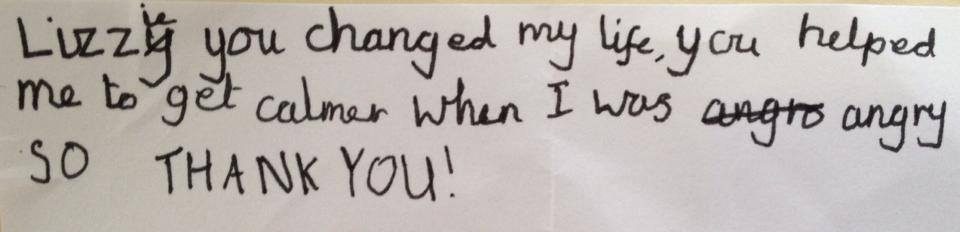 Lizzie you changed my life, you helped
me to get calmer when I was angro angry
SO THANK YOU!